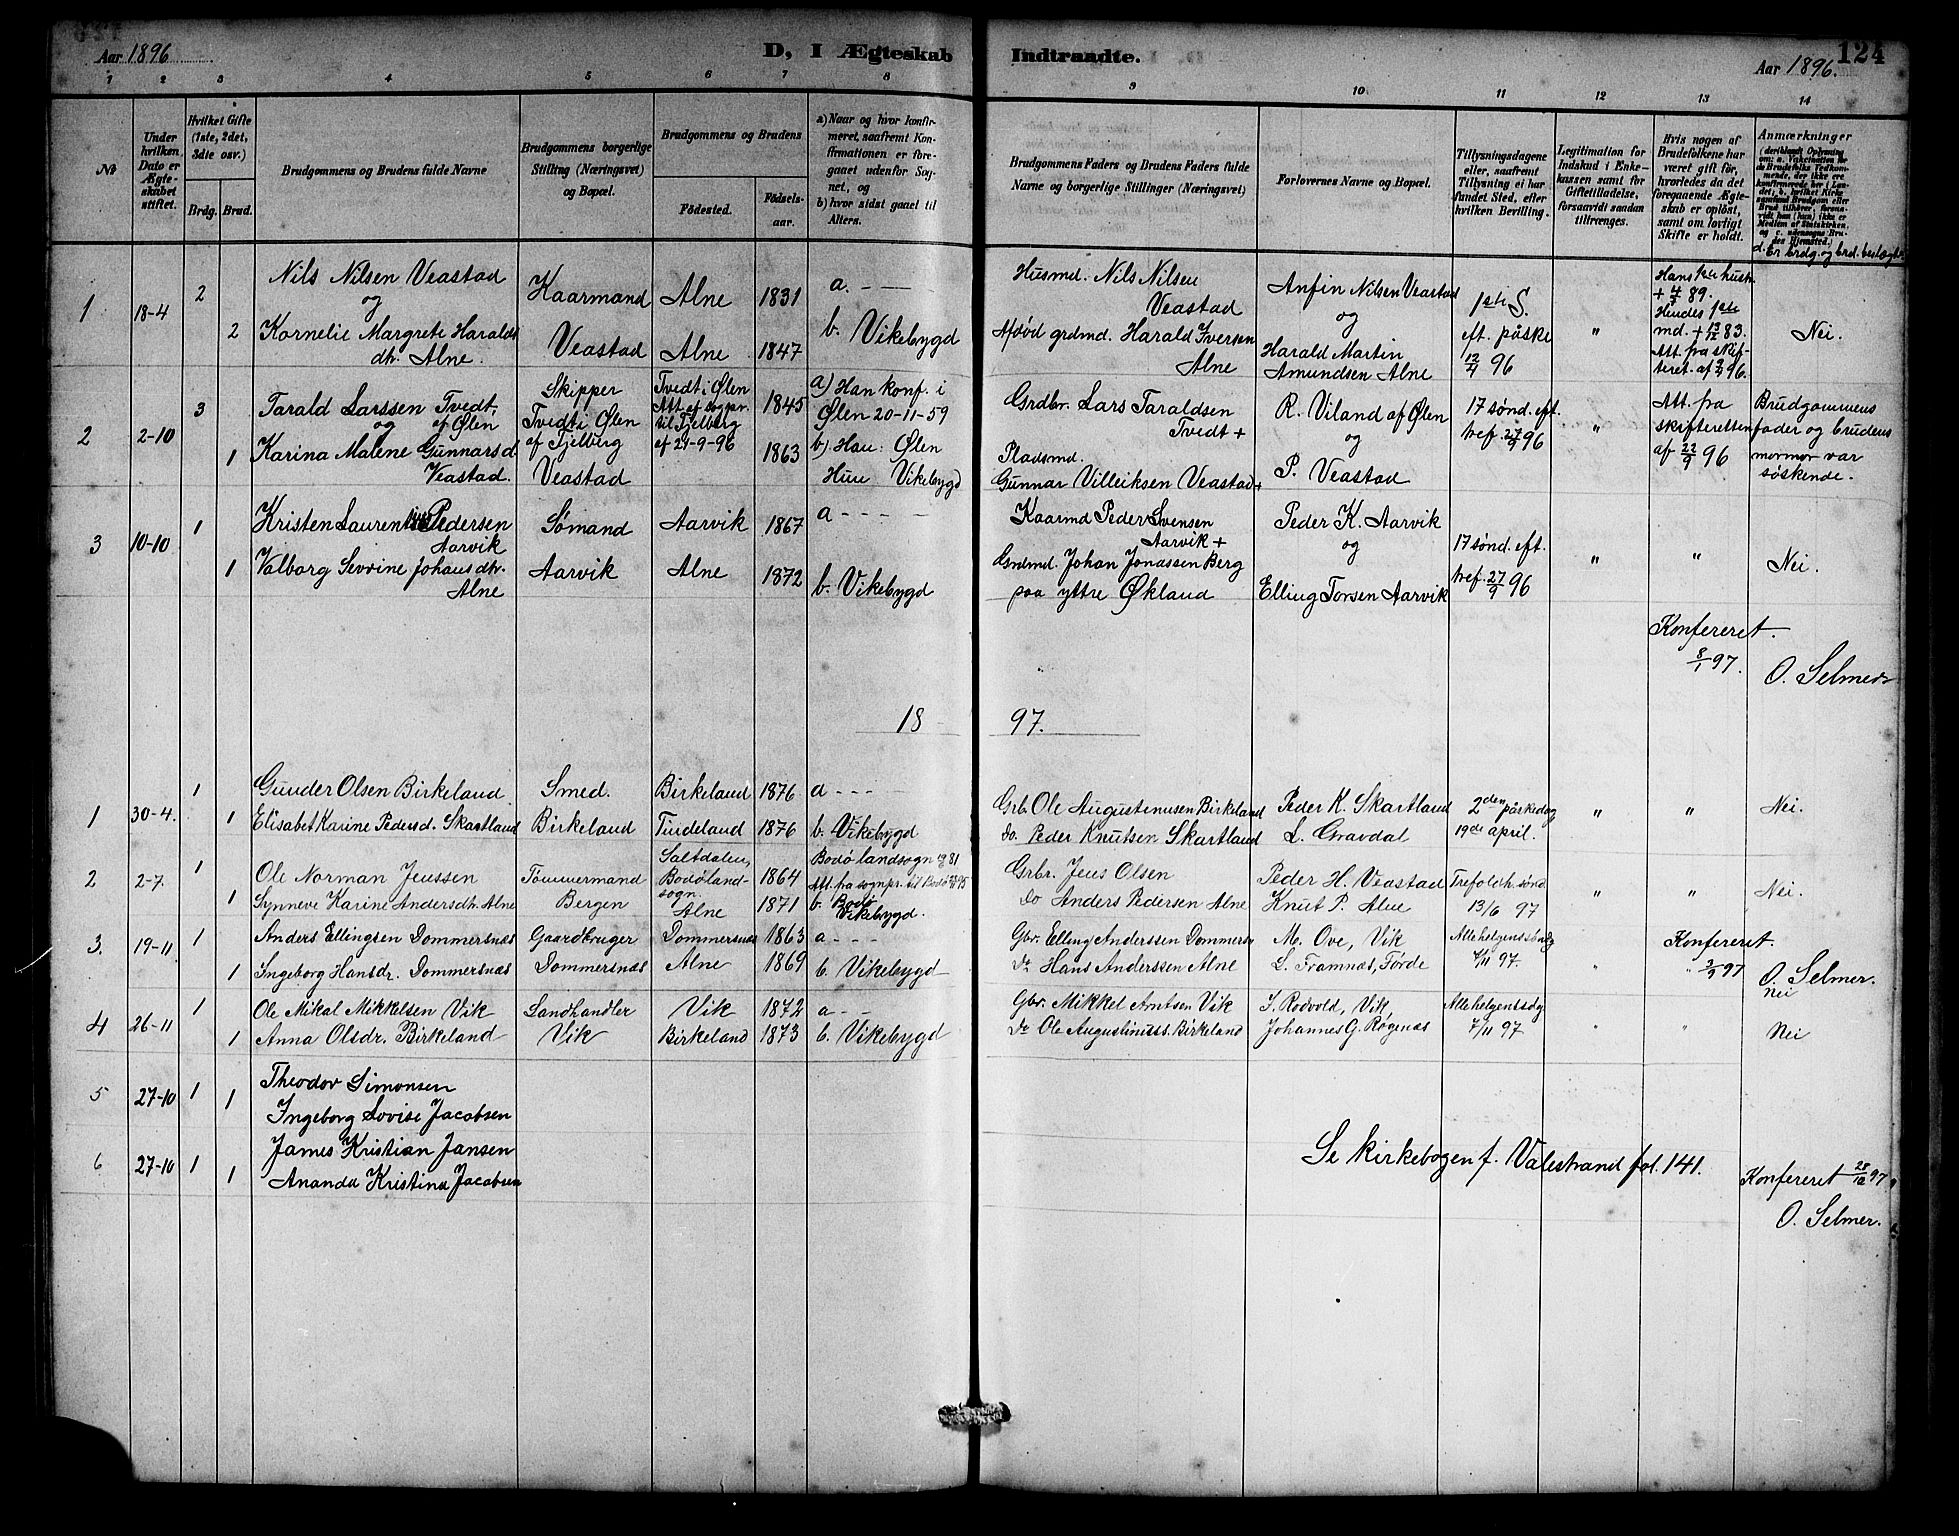 Aar 1896
D, I Ægteskab Indtraadte.
124
Aar 1896.
1 2 3 4 5 6 7 8 9 10 11 12 13 14
No
Under hvilken Dato er Ægteskabet stiftet.
Hvilket Gifte (1ste, 2det, 3die osv.)
Brdg. Brud.
Brudgommens og Brudens fulde Navne
Brudgommens borgerlige Stilling (Næringsvei) og Bopæl.
Brudgommens og Brudens
Födested.
Födselsaar.
a) Naar og hvor konfirmeret, saafremt Konfirmationen er foregaaet udenfor Sognet, og
b) hvor sidst gaaet til Alters.
Brudgommens Faders og Brudens Faders fulde Navne og borgerlige Stillinger (Næringsvei)
Forlovernes Navne og Bopæl.
Tillysningsdagene eller, saafremt Tillysning ei har fundet Sted, efter hvilken Bevilling.
Legitimation for Indskud i Enkekassen samt for Giftetilladelse, forsaavidt saadan tiltrænges.
Hvis nogen af Brudefolkene har været gift før, hvorledes da det foregaaende Ægteskab er oplöst, samt om lovligt Skifte er holdt.
Anmærkninger
d. Er brdg. og brd. beslægtet
1 18-4 2 2
Nils Nilsen Veastad
og
Kornelie Margrete Haralds
dtr. Alne.
Kaarmand
Veastad
Alne 1831
Alne 1847
a. - -
b. Vikebygd
Husmd. Nils Nilsen
Veastad
Afdød grdmd. Harald Iversen
Alne
Anfin Nilsen Veastad
og
Harald Martin
Amundsen Alne
1ste S.
eft. påske
12/4 96
"
Hans 1ste hust.
+ 4/5 89.
Hendes 1ste
md. + 13/12 83.
Att. fra skif-
teret. af 96.
Nei.
2 2-10 3 1
Tarald Larssen Tvedt,
og af Ølen
Karina Malene Gunnarsd
Veastad.
Skipper
Tvedt i Ølen
af Fjelberg
Veastad
Tvedt i Ølen
Att. af sognpr.
til Fjelberg
af 21-9-96
1845
1863
a) Han konf. i
Ølen 20-11-59
b) Han: Ølen
Hun Vikebygd
Grdbr. Lars Taraldsen
Tvedt +
Pladsmd.
Gunnar Villeiksen Veastad +
R. Viland af Ølen
og
P. Veastad
17 sønd. eft.
tref. 27/9 96
"
Att. fra
skifteretten
af 22/9 96
Brudgommens
fader og brudens
mormor var
søskende.
3 10-10 1 1
Kristen Laurentius Pedersen
Aarvik
Valborg Severine Johansdtr.
Alne
Sømand
Aarvik
Aarvik 1867
Alne 1872
a - - - -
b. Vikebygd
Kaarmd Peder Svensen
Aarvik +
Grdmd. Johan Jonassen Berg
paa yttre Økland
Peder K. Aarvik
og
Elling Torsen Aarvik
17 sønd. eft.
tref. 27/9 96
" "
Nei.
Konfereret.
8/1 97.
O. Selmer
1897.
1 30-4. 1 1
Gunder Olsen Birkeland
Elisabet Karine Pedersd. Skartland
Smed.
Birkeland
Birkeland 1876
Tindeland 1876
a - - -
b. Vikebygd
Grb. Ole Augustenusen Birkeland
Do. Peder Knutsen Skartland
Peder K. Skartland
L. Gravdal
2den påskedag
19de april.
" "
Nei.
2 2-7. 1 1
Ole Norman Jenssen
Synneve Karine Andersdtr. Alne
Tømmermand
Bergen
Saltdalen,
Bodøland-
sogn.
Alne
1864
1871
Bodø landsogn 81
Att. fra sognpr. til Bodø 95
b. Bodø
Vikebygd.
Grbr. Jens Olsen
Do Anders Pedersen Alne
Peder H. Veastad
Knut P. Alne
Trefoldh. sønd
13/6 97
" "
Nei.
3. 19-11 1 1
Anders Ellingsen Dommersnæs
Ingeborg Hansdr. Dommersnæs
Gaardbruger
Dommersnæs
Dommersnæs 1863
Alne 1869
a - - -
b. Vikebygd
Gbr. Elling Anderssen Dommersn
Do Hans Anderssen Alne
M. Ove, Vik
L. Framnæs, Førde
Allehelgenssøndg
7/11 97.
" "
Konfereret.
3/9 97
O. Selmer.
Nei
4 26-11 1 1
Ole Mikal Mikkelsen Vik
Anna Olsdr. Birkeland
Landhandler
Vik
Vik 1872
Birkeland 1873
a - -
b. Vikebygd
Gbr. Mikkel Arntsen Vik
Do Ole Augustinuss. Birkeland
I. Rodvold, Vik
Johannes G. Røgenæs
Allehelgensdg
7/11 97.
" "
Nei
5 27-10 1 1
Theodor Simonsen
Ingeborg Lovise Jacobsen
6 27-10 1 1
James Kristian Jansen
Ananda Kristina Jacobsen
Se kirkebogen f. Valestrand fol. 141.
Konfereret 28/12 97.
O. Selmer.